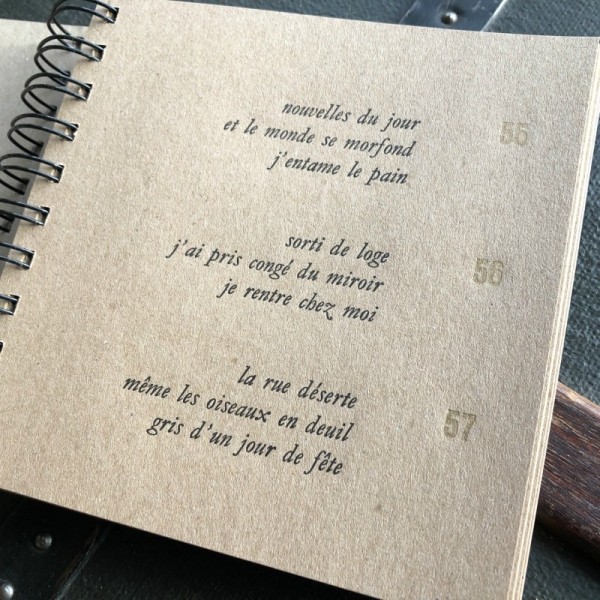 nouvelles du jour
et le monde se morfond
j'entame le pain
55
sorti de loge
j'ai pris congé du miroir
je rentre chez moi
56
la rue déserte
même les oiseaux en deuil
gris d'un jour de fête
57